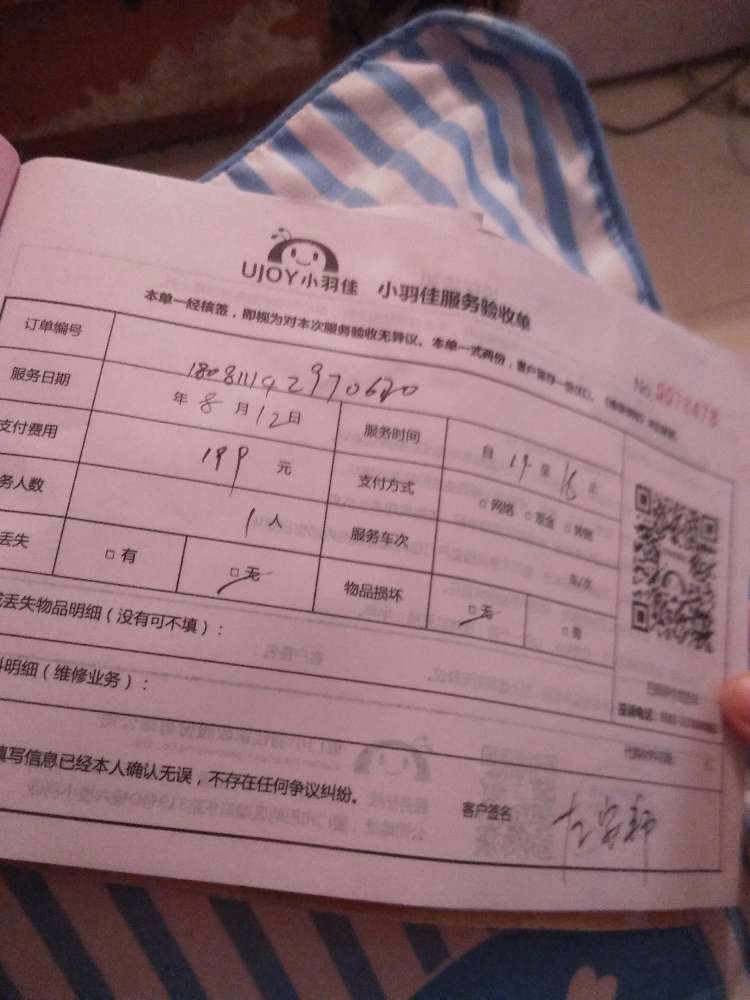 UJOY小羽佳 小羽佳服务验收单
本单一经核签，即视为对本次服务验收无异议。本单一式两份，客户留存一份
No.0076478
订单编号 180811142970620
服务日期 年 8 月 12 日 服务时间 自 14 至 16
支付费用 199 元 支付方式 □ 网络 □ 现金 □
务人数 1 人 服务车次 车/次
丢失 □ 有 □ 无 物品损坏 □ 无 □ 有
丢失物品明细（没有可不填）：
料明细（维修业务）：
填写信息已经本人确认无误，不存在任何争议纠纷。 客户签名